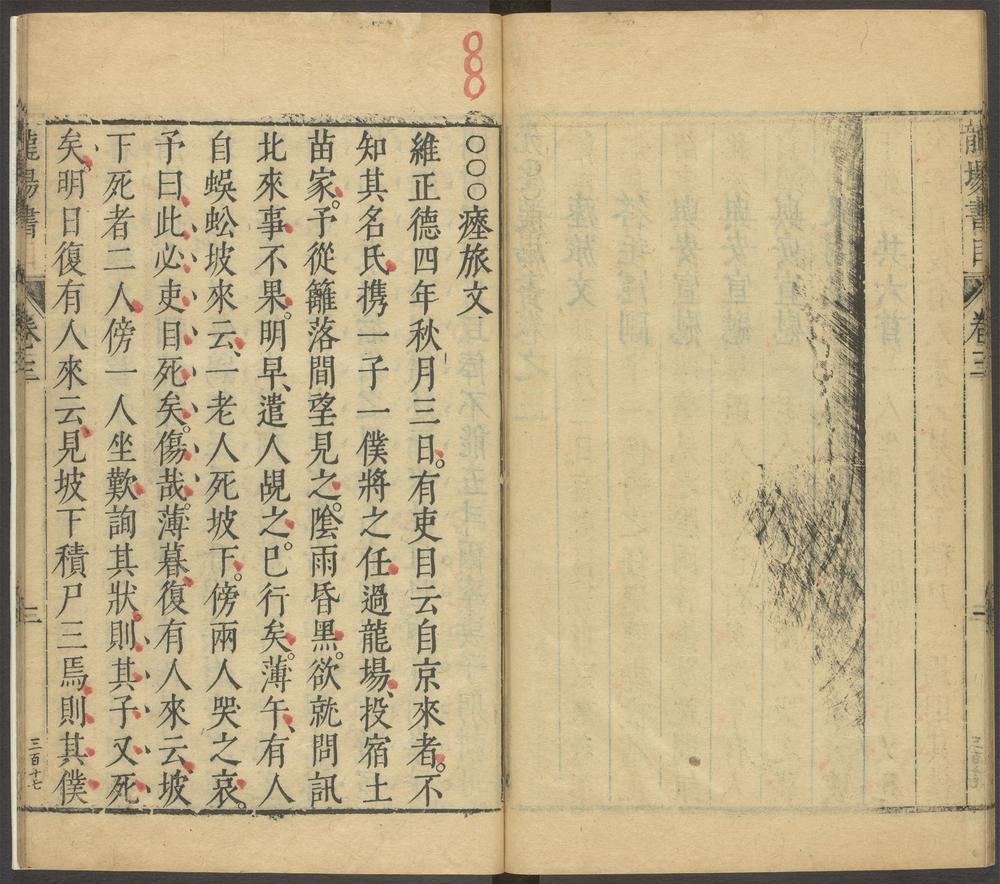 龍場書目 卷三 一
88
○○○瘞旅文
維正德四年秋月三日。有吏目云自京來者。不
知其名氏、携一子一僕將之任、過龍場、投宿土
苗家。予從籬落間望見之。陰雨昏黑。欲就問訊
北來事、不果。明早、遣人覘之。已行矣。薄午、有人
自蜈蚣坡來云、一老人死坡下。傍兩人哭之哀。
予曰、此必吏目死矣。傷哉。薄暮、復有人來云、坡
下死者二人、傍一人坐歎、詢其狀、則其子又死
矣。明日復有人來云、見坡下積尸三焉、則其僕
龍場書 卷三 三 三百十七